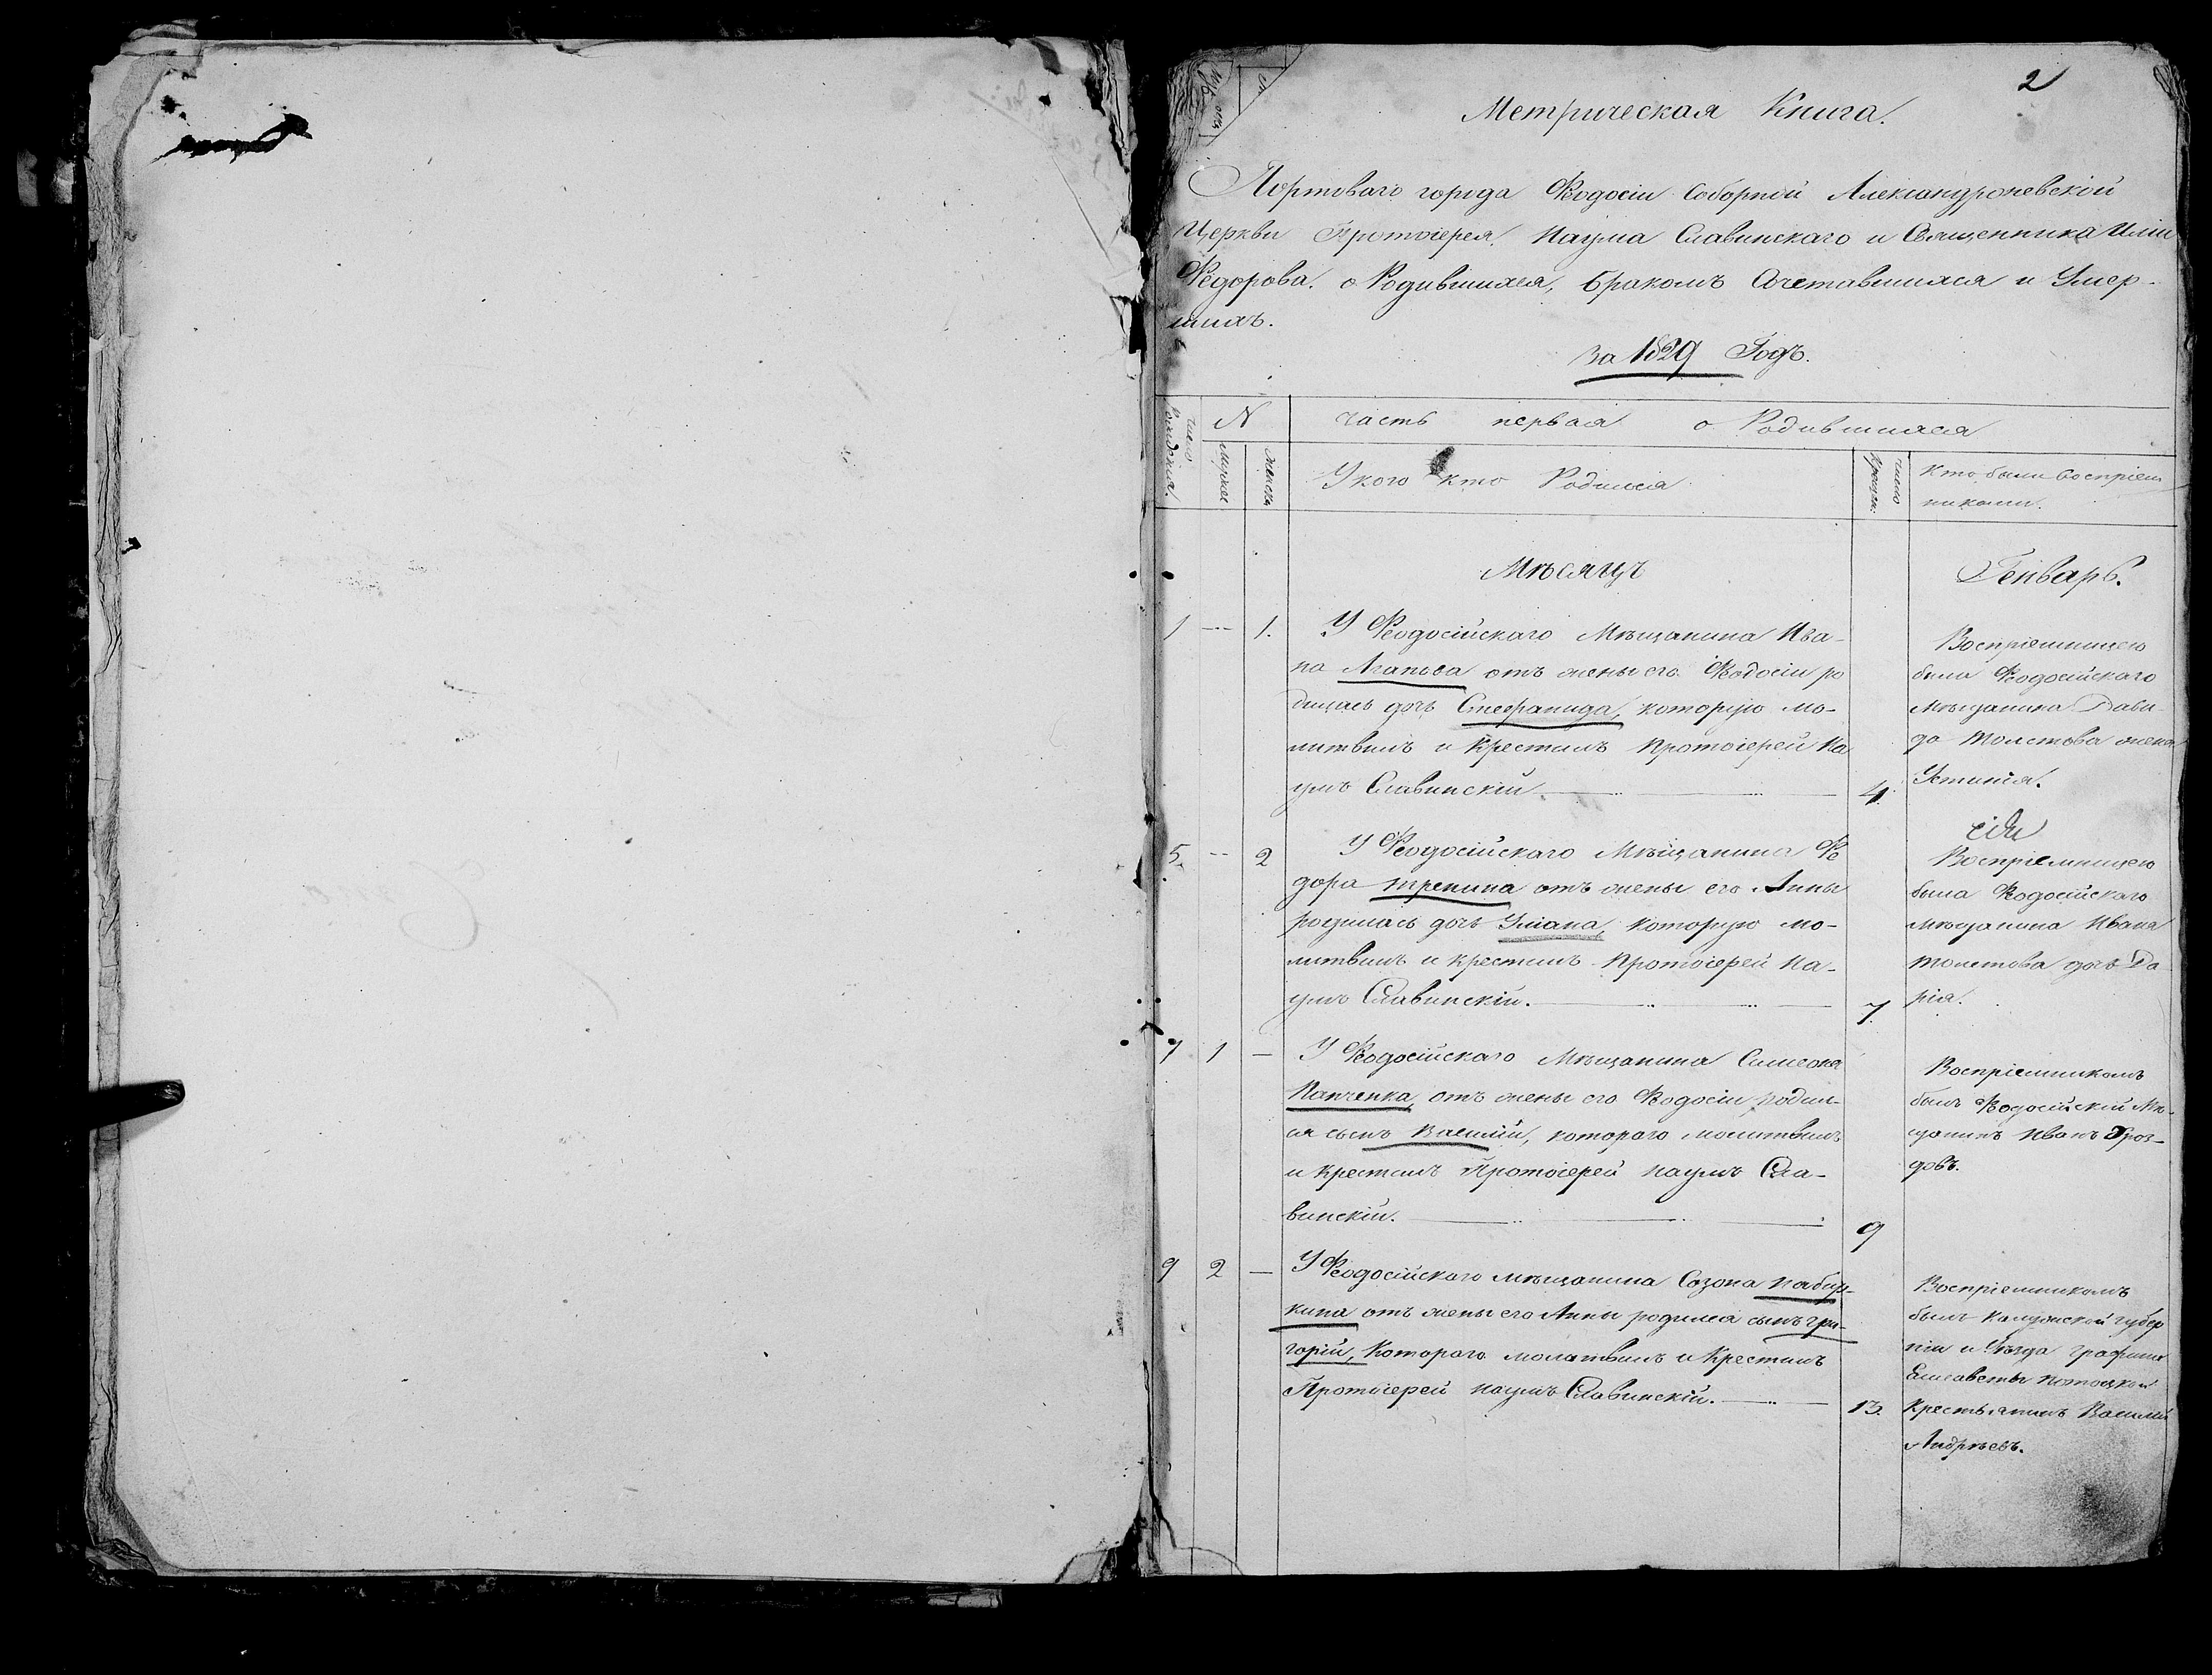 2
Метрическая Книга.
Портоваго города Феодосіи Соборной Александроневской
Церкви Протоіерея Наума Славинскаго и Священника Иліи
Федорова. о Родившихся, бракомъ Сочетавшихся и Умер-
шихъ.
за 1829 Годъ.
число рожденія.
N
часть первая о Родившихся
мужск
женска
У кого кто Родился
число крещен.
Кто были воспріем
никами.
Мѣсяцъ
Генварь.
1 — 1.
У Феодосійскаго Мѣщанина Ива-
на Агапова отъ жены его Феодосіи ро
дилась дочь Стефанида, которую мо-
литвилъ и крестилъ Протоіерей На
умъ Славинскій
4.
Воспріемницею
была Феодосійскаго
Мѣщанина Дави-
да Толстова жена
Устинія.
5. — 2
У Феодосійскаго Мѣщанина Фе
дора отъ жены его Анны
родилась дочь которую мо-
литвилъ и крестилъ Протоіерей На-
умъ Славинскій.
7.
Воспріемницею
была Феодосійскаго
мѣщанина Ивана
Толстова дочь Да
рія.
7 1 —
У Феодосійскаго Мѣщанина Симеона
Панченка, отъ жены его Феодосіи родил-
ся сынъ Василій, котораго молитвилъ
и крестилъ Протоіерей Наумъ Сла-
винскій.
9
Воспріемникомъ
былъ Феодосійскій Мѣ-
щанинъ Иванъ Дроз-
довъ.
9 2 —
У Феодосійскаго мѣщанина Созона
кина отъ жены его Анны родился сынъ Гри-
горій, Котораго молитвилъ и Крестилъ
Протоіерей Наумъ Славинскій.
13.
Воспріемникомъ
былъ Калужской губер
ніи и Уѣзда графини
Елисаветы Потоцкой
Крестьянинъ Василій
Андрѣевъ.